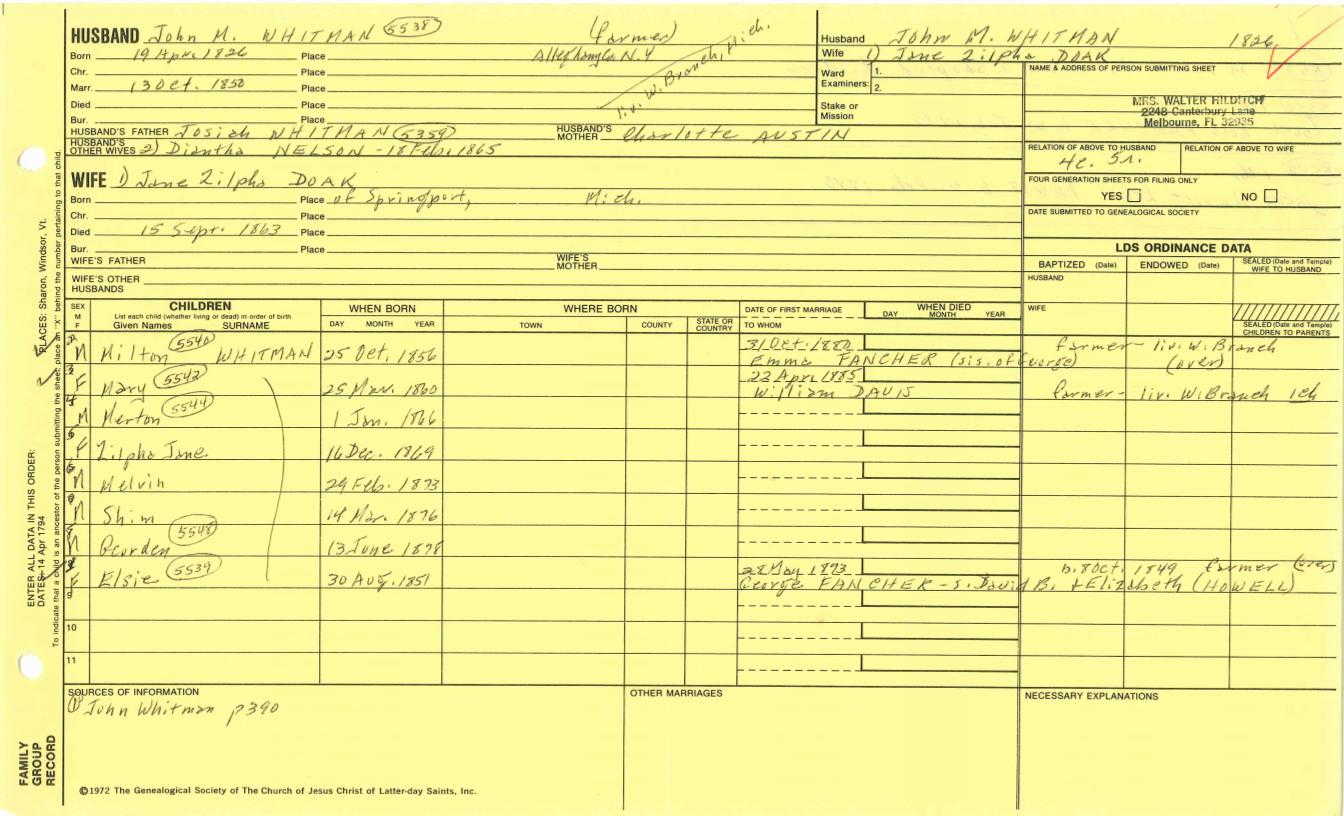 HUSBAND John M. WHITMAN 5538 (farmer)
Born 19 Apr. 1826 Place N.Y
Chr. Place liv. W. Branch, Mich.
Marr. 13 Oct. 1850 Place
Died Place
Bur. Place
HUSBAND'S FATHER Josiah WHITMAN (5359) HUSBAND'S MOTHER Charlotte AUSTIN
HUSBAND'S OTHER WIVES 2) Diantha NELSON - 18 Feb. 1865
WIFE 1) Jane Zilpha DOAK
Born Place of Springport, Mich.
Chr. Place
Died 15 Sepr. 1863 Place
Bur. Place
WIFE'S FATHER WIFE'S MOTHER
WIFE'S OTHER HUSBANDS
Husband John M. WHITMAN 1826
Wife 1) Jane Zilpha DOAK
Ward Examiners: 1. 2.
Stake or Mission
NAME & ADDRESS OF PERSON SUBMITTING SHEET
MRS. WALTER HILDITCH
2248 Canterbury Lane
Melbourne, FL 32935
RELATION OF ABOVE TO HUSBAND RELATION OF ABOVE TO WIFE
4c. 5r.
FOUR GENERATION SHEETS FOR FILING ONLY
YES NO
DATE SUBMITTED TO GENEALOGICAL SOCIETY
LDS ORDINANCE DATA
BAPTIZED (Date) ENDOWED (Date) SEALED (Date and Temple) WIFE TO HUSBAND
HUSBAND
WIFE
SEALED (Date and Temple) CHILDREN TO PARENTS
SEX M F
CHILDREN
List each child (whether living or dead) in order of birth
Given Names SURNAME
WHEN BORN
DAY MONTH YEAR
WHERE BORN
TOWN COUNTY STATE OR COUNTRY
DATE OF FIRST MARRIAGE
TO WHOM
WHEN DIED
DAY MONTH YEAR
2 M Milton 5540 WHITMAN 25 Oct. 1856 31 Oct. 1880 farmer - liv. W. Branch
Emma FANCHER (sis. of George) (over)
3 F Mary 5542 25 Mar. 1860 22 Apr. 1885
William DAVIS farmer - liv. W. Branch
4 M Merton 5544 1 Jan. 1866
5 F Zilpha Jane 16 Dec. 1869
6 M Melvin 24 Feb. 1873
M Shim 14 Mar. 1876
M 5548 13 June 1878
1 F Elsie 5539 30 Aug. 1851 28 May 1873 b. 8 Oct. 1849 farmer (over)
George FANCHER - s. David B. + Elizabeth (HOWELL)
9
10
11
SOURCES OF INFORMATION
① John Whitman p390
OTHER MARRIAGES
NECESSARY EXPLANATIONS
©1972 The Genealogical Society of The Church of Jesus Christ of Latter-day Saints, Inc.
FAMILY GROUP RECORD
ENTER ALL DATA IN THIS ORDER:
DATES: 14 Apr 1794
PLACES: Sharon, Windsor, Vt.
To indicate that a child is an ancestor of the person submitting the sheet, place an "X" behind the number pertaining to that child.